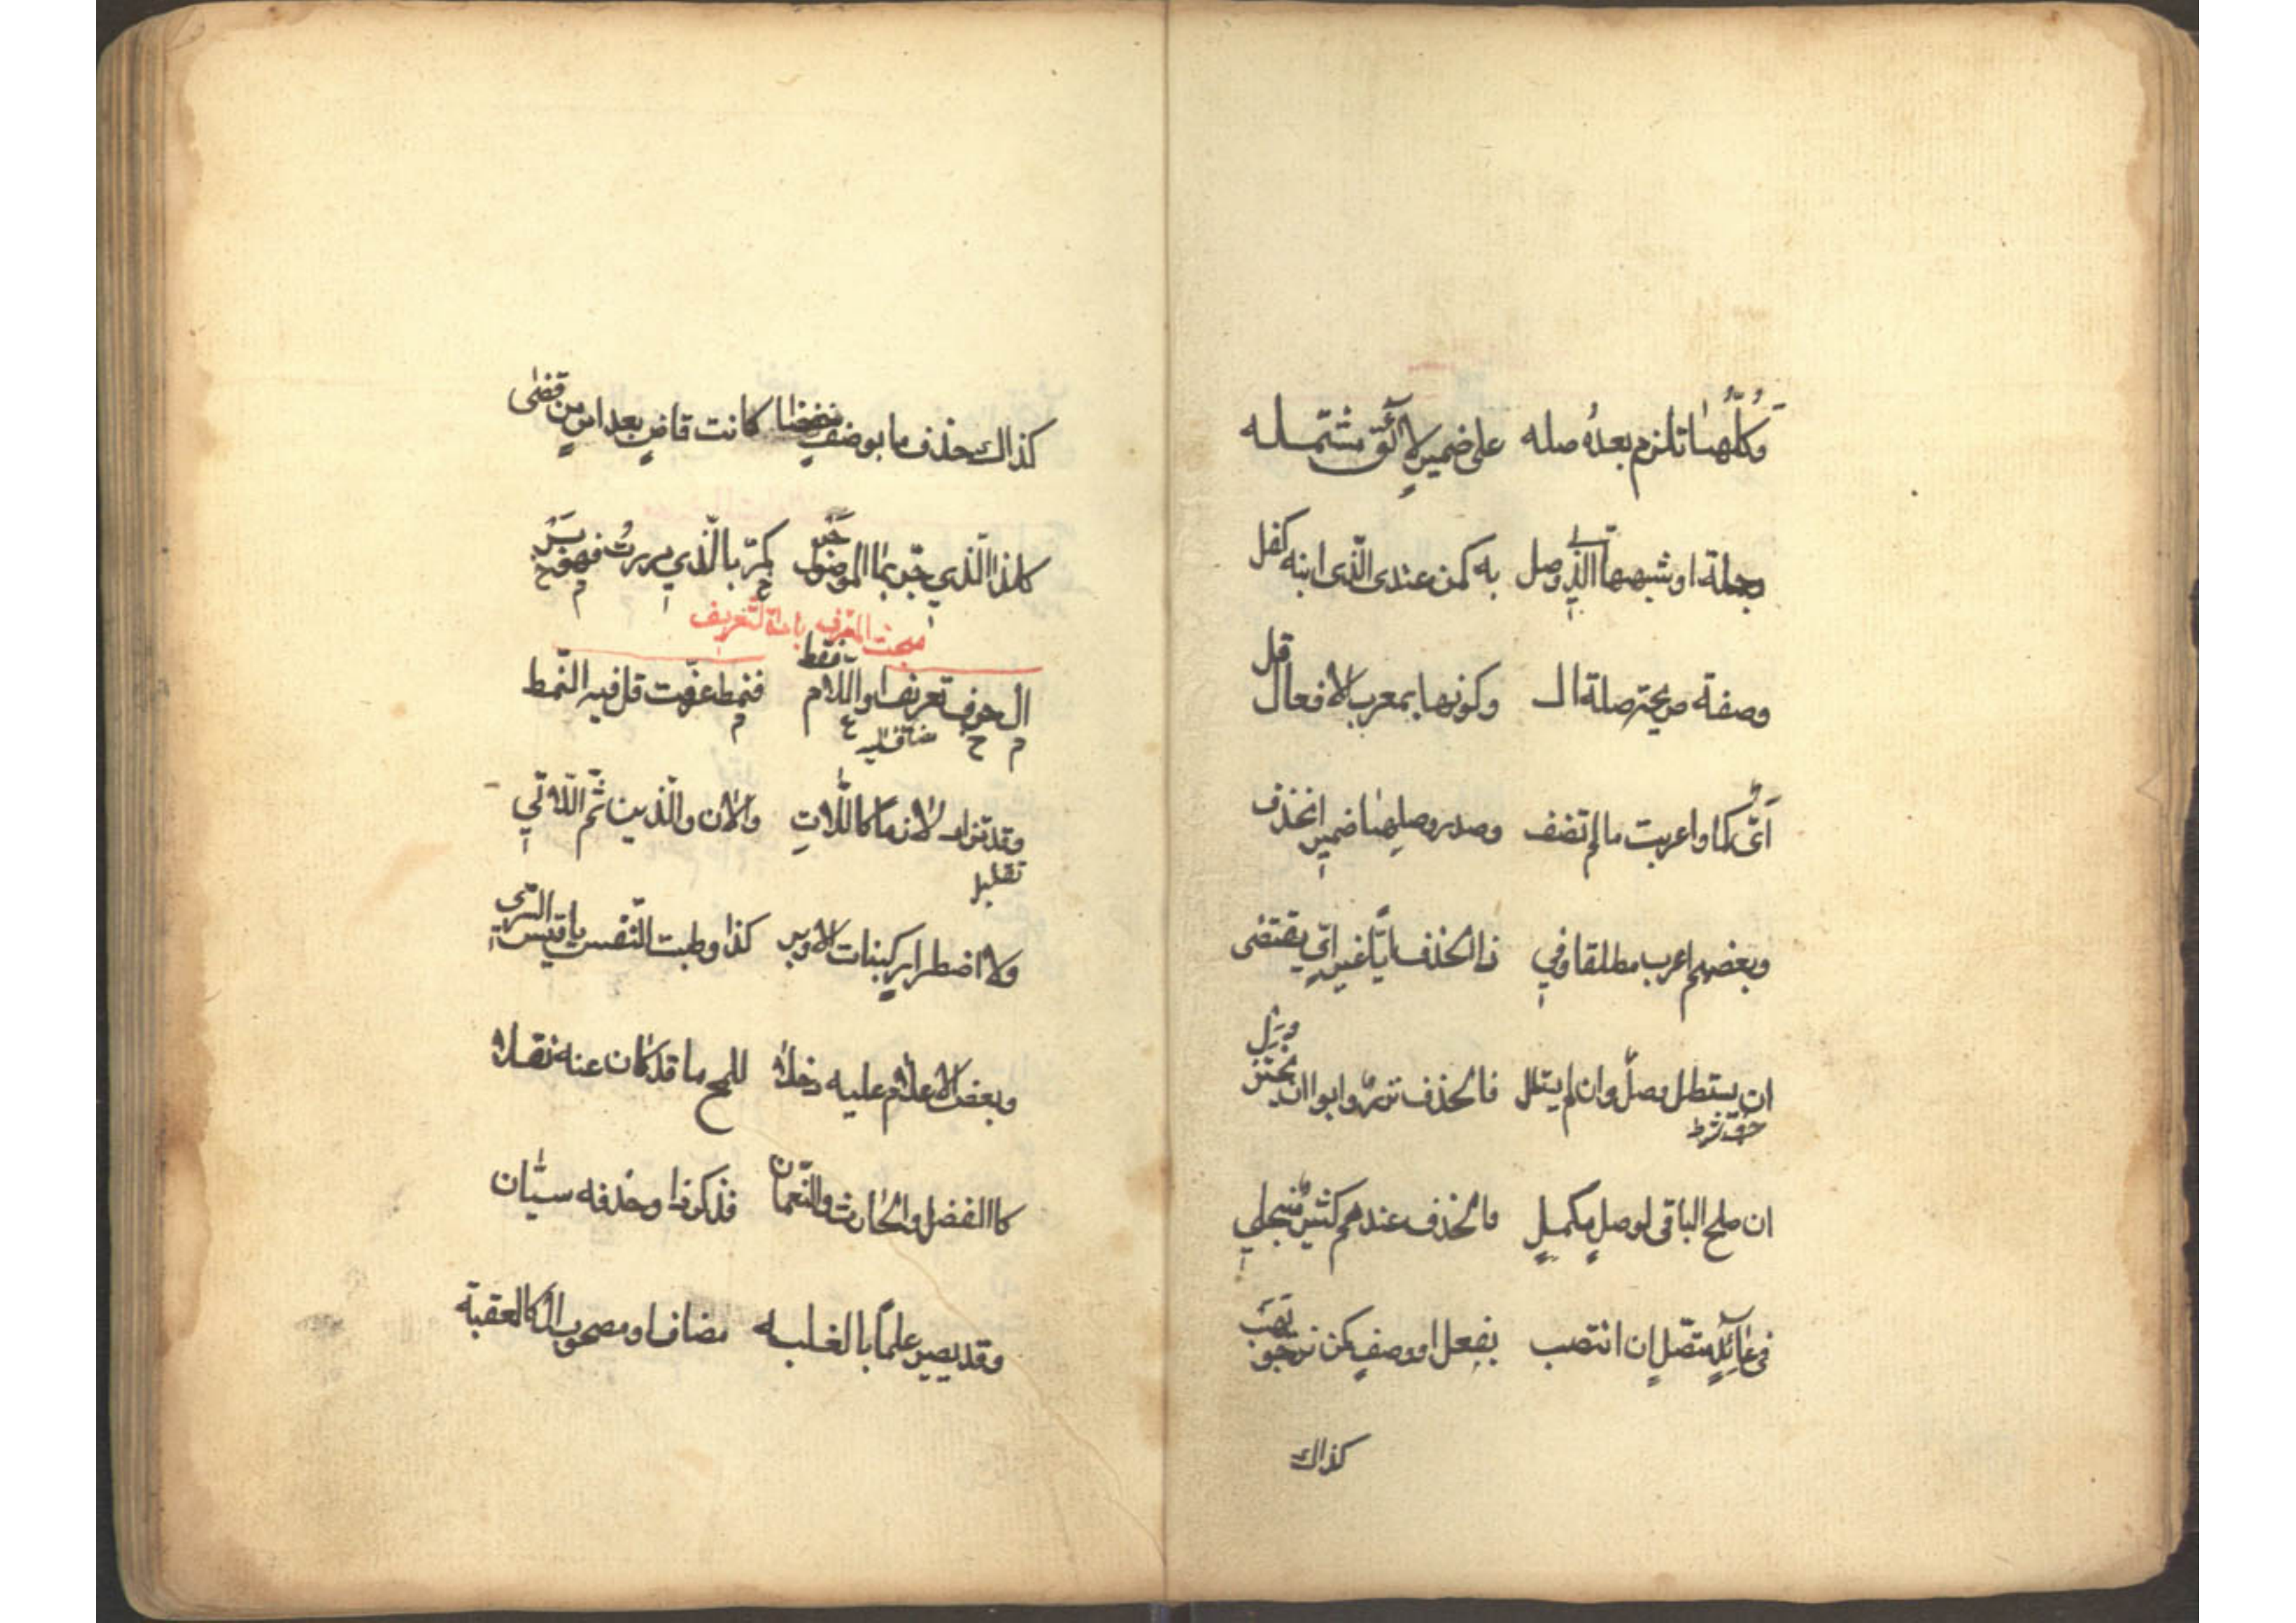 وكلها تلزم بعده صله على ضمير لائق مشتمله
وجملة او شبهها الذي وصل به كمن عندي الذي ابنه كفل
وصفة صريحة صلة ال وكونها بمعرب الافعال قل
اي كما واعربت ما لم تضف وصدر وصلها ضمير انحذف
وبعضهم اعرب مطلقا وفي ذا الحذف ايا غير اي يقتفى
ان يستطل وصل وان لم يستطل فالحذف نزر وابوا ان يختزل
حرف شرط
ان صلح الباقي لوصل مكمل والحذف عندهم كثير منجلي
في عائد متصل ان انتصب بفعل او وصف كمن نرجو يهب
كذاك
كذاك حذف ما بوصف خفضا كانت قاض بعد امر من قضى
كذا الذي جر بما الموصول جر كمر بالذي مررت فهو بر
مبحث المعرف باداة التعريف
ال حرف تعريف او اللام فقط فنمط عرفت قل فيه النمط
وقد تزاد لازما كاللات والان والذين ثم اللاتي
تقليل
ولاضطرار كبنات الاوبر كذا وطبت النفس يا قيس السري
وبعض الاعلام عليه دخلا للمح ما قد كان عنه نقلا
كالفضل والحارث والنعمان فذكر ذا وحذفه سيان
وقد يصير علما بالغلبه مضاف او مصحوب ال كالعقبة